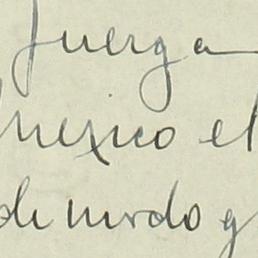 juerga
mexico el
de modo q